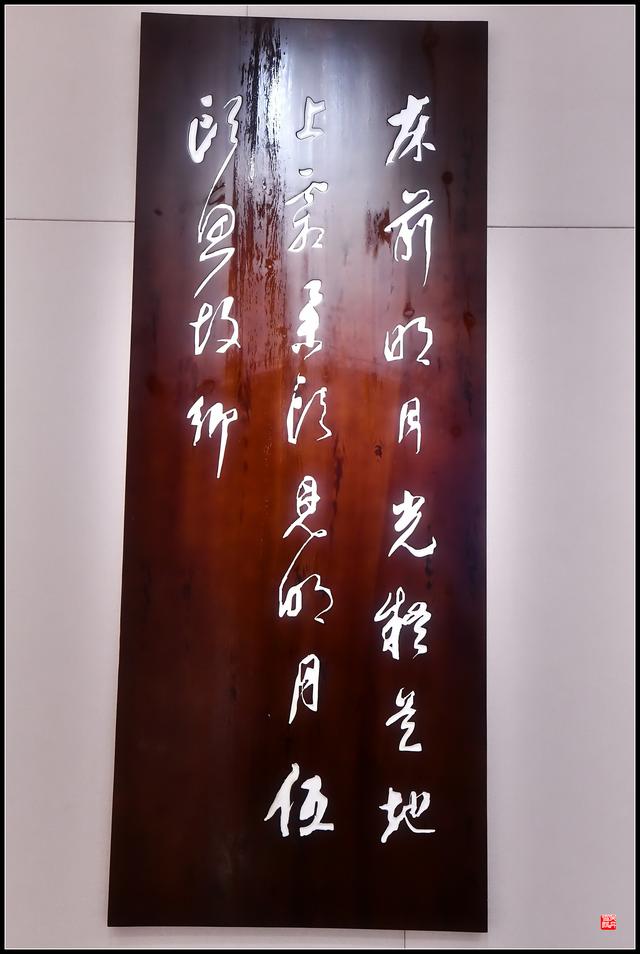 床前明月光疑是地
上霜举头见明月低
头思故乡